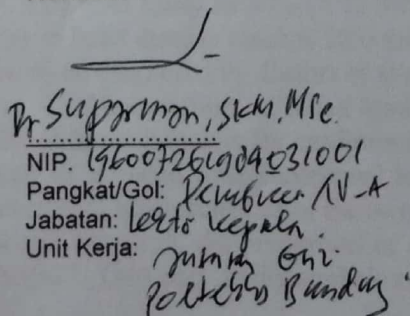 Dr Suparman, SKM, MSc.
NIP. 196007261984031001
Pangkat/Gol: Pembina IV-A
Jabatan: Lektor Kepala
Unit Kerja: Jurusan Gizi
Poltekkes Bandung